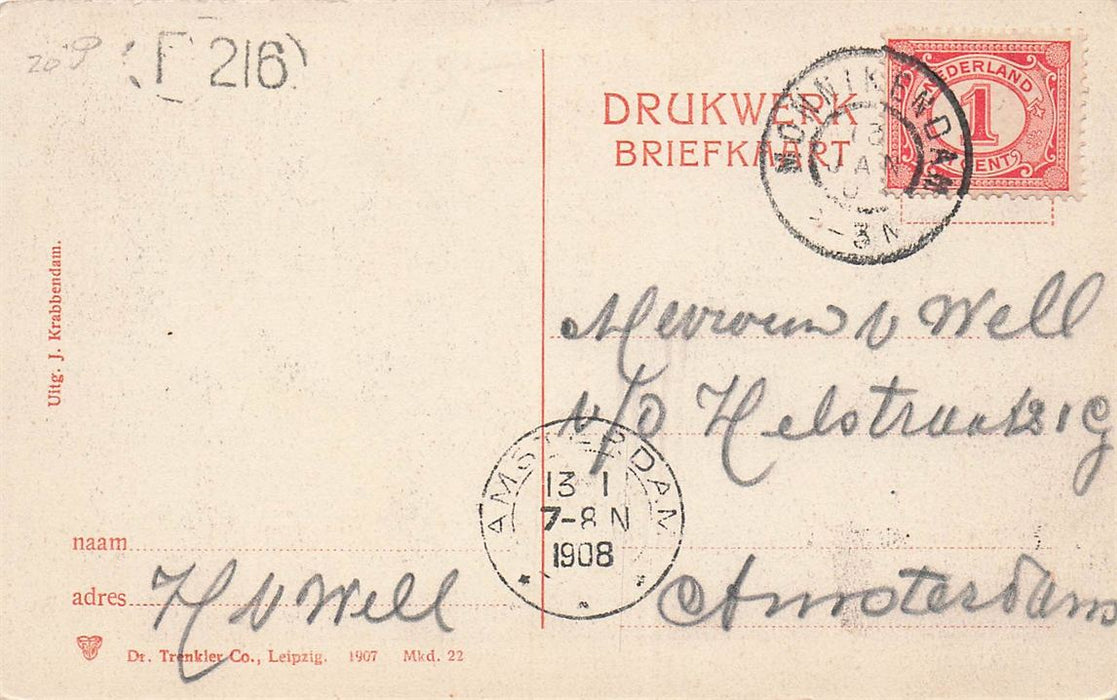 20
216
DRUKWERK
BRIEFKAART
NEDERLAND
1
CENT
MONNIKENDAM
13
JAN
-3N
Uitg. J. Krabbendam.
Mevrouw v Well
v/d Helstraat
Amsterdam
AMSTERDAM
13 1
7-8 N
1908
naam
adres
H v Well
Dr. Trenkler Co., Leipzig. 1907 Mkd. 22